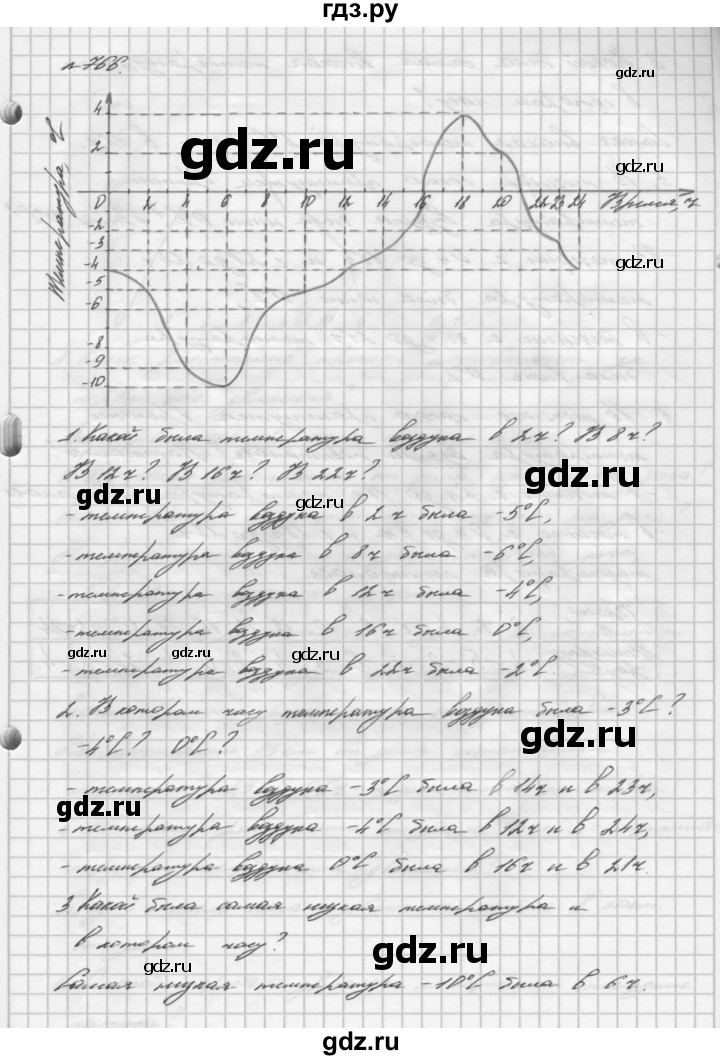 гдз.ру
№766.
gdz.ru
Температура, °C
4
2
0 2 4 6 8 10 12 14 16 18 20 22 23 24 Время, ч
-2
-3
-4
-5
-6
-8
-9
-10
gdz.ru
gdz.ru
gdz.ru
gdz.ru
1. Какой была температура воздуха в 2ч? В 8ч?
В 12ч? В 16ч? В 22ч?
gdz.ru
gdz.ru
- температура воздуха в 2 ч была -5°C,
gdz.ru
- температура воздуха в 8ч была -6°C,
- температура воздуха в 12ч была -4°C,
- температура воздуха в 16ч была 0°C,
gdz.ru
gdz.ru
- температура воздуха в 22ч была -2°C.
2. В котором часу температура воздуха была -3°C?
-4°C? 0°C?
gdz.ru
- температура воздуха -3°C была в 14ч и в 23ч,
gdz.ru
- температура воздуха -4°C была в 12ч и в 24ч,
- температура воздуха 0°C была в 16ч и в 21ч.
3 Какой была самая низкая температура и
в котором часу?
gdz.ru
gdz.ru
Самая низкая температура -10°C была в 6ч.
gdz.ru
gdz.ru